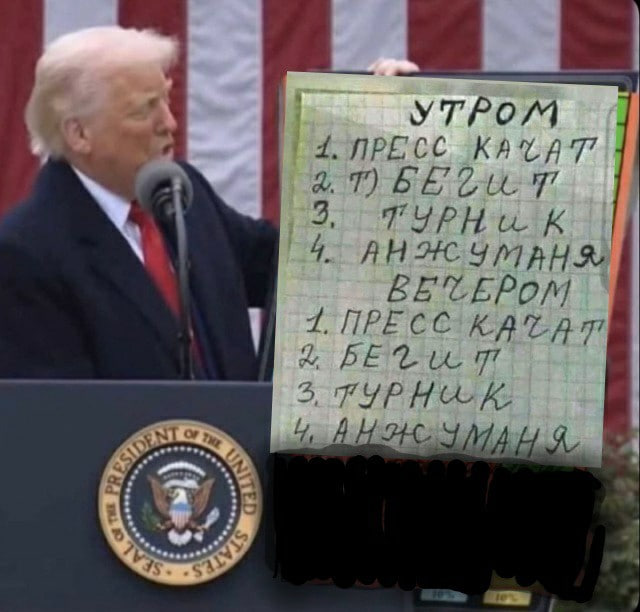 УТРОМ
1. ПРЕСС КАЧАТ
2. Т) БЕГИТ
3. ТУРНИК
4. АНЖУМАНЯ
ВЕЧЕРОМ
1. ПРЕСС КАЧАТ
2. БЕГИТ
3. ТУРНИК
4. АНЖУМАНЯ
SEAL OF THE PRESIDENT OF THE UNITED STATES
10%
10%